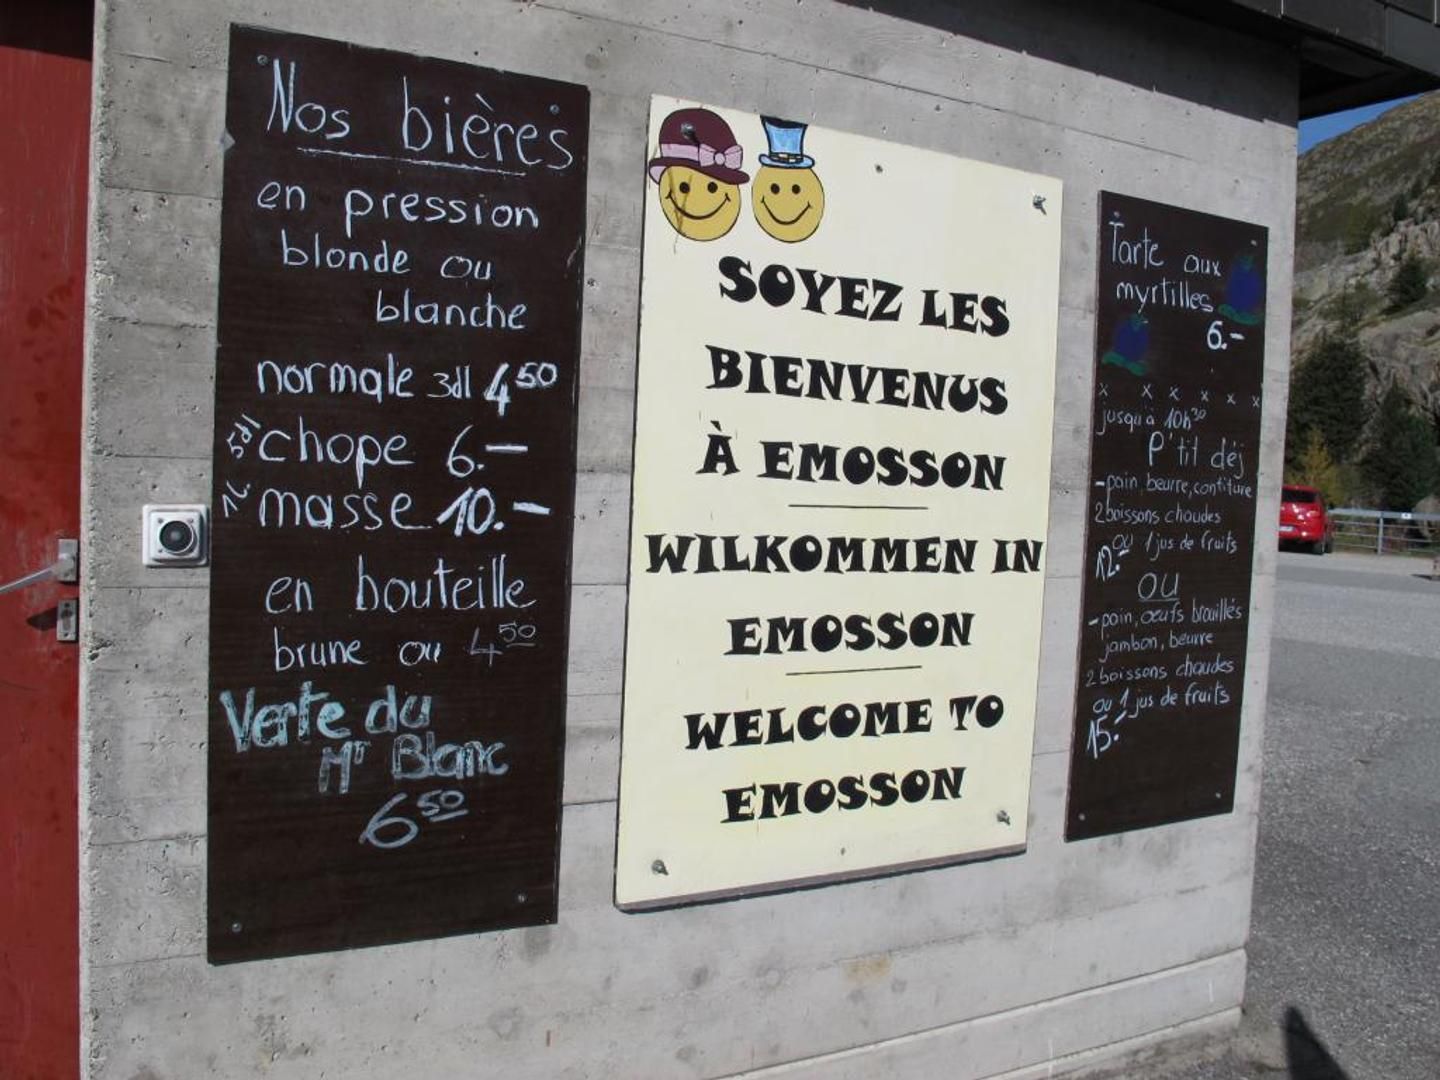 Nos bières
en pression
blonde ou
blanche
normale 3dl 4 50
5dl chope 6.-
1L. masse 10.-
en bouteille
brune ou 4 50
Verte du
Mt Blanc
6 50
SOYEZ LES
BIENVENUS
À EMOSSON
WILKOMMEN IN
EMOSSON
WELCOME TO
EMOSSON
Tarte aux
myrtilles
6.-
x x x x x x
jusqu'à 10h30
P'tit déj
-pain, beurre, confiture
2 boissons chaudes
ou 1 jus de fruits
12.-
OU
-pain, oeufs brouillés
jambon, beurre
2 boissons chaudes
ou 1 jus de fruits
15.-